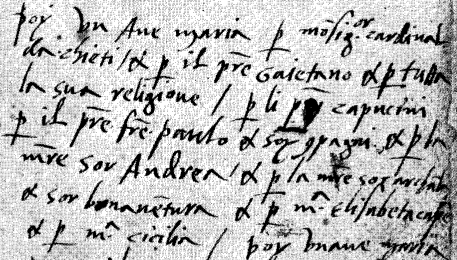 poj vn Ave maria p mōsigor cardinal
da chieti / & p il pr̄e Gaietano & p tutta
la sua religione / p li capucini
p il pr̄e fre paulo & soj 9pagni & p la
mr̄e Sor Andrea / & p la mr̄e sor
& sor bonavētura & p mª Elisabeta
& p mª Cicilia / poj vn ave maria